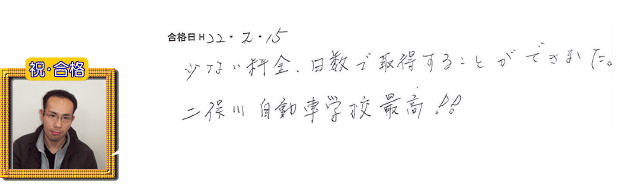 合格日 H22・2・15
祝・合格
少ない料金、日数で取得することができました。
二俣川自動車学校最高!!